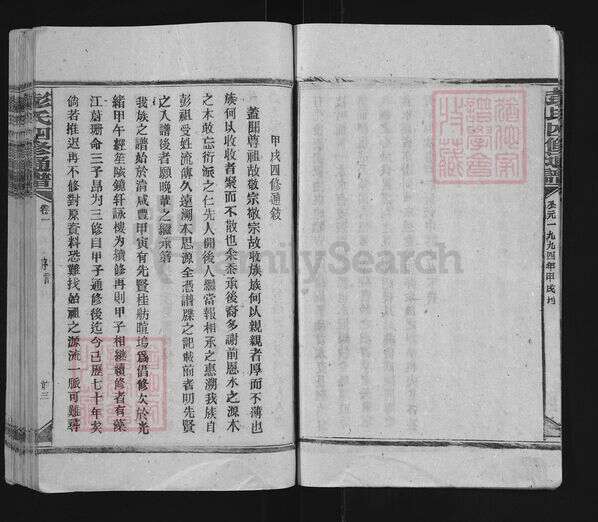 彭氏四修通譜
公元一九九四年甲戌
甲戌四修通敘
蓋聞尊祖故敬宗敬宗故收族族何以親親者厚而不薄也
族何以收收者聚而不散也忝承後裔多謝前恩水之源木
之本敢忘衍派之仁先人開後人繼當報相承之惠溯我族自
彭祖受姓流傳久遠溯本思源全憑譜牒之記載前者明先賢
之入譜後者願晚輩之繼承第
我族之譜始於清咸豐甲寅有先賢桂舫暄塢為倡修次於光
緒甲午經笙陔鏡軒詠樓為續修再則甲子相繼續修者有藻
江蔚珊命三子昂為三修曰甲子通修後迄今已歷七十年矣
倘若推遲再不修對原資料恐難找始祖之源流一脈可難尋
彭氏四修通譜
卷一
序言
廿三
道德宗
譜學會
特藏
FamilySearch